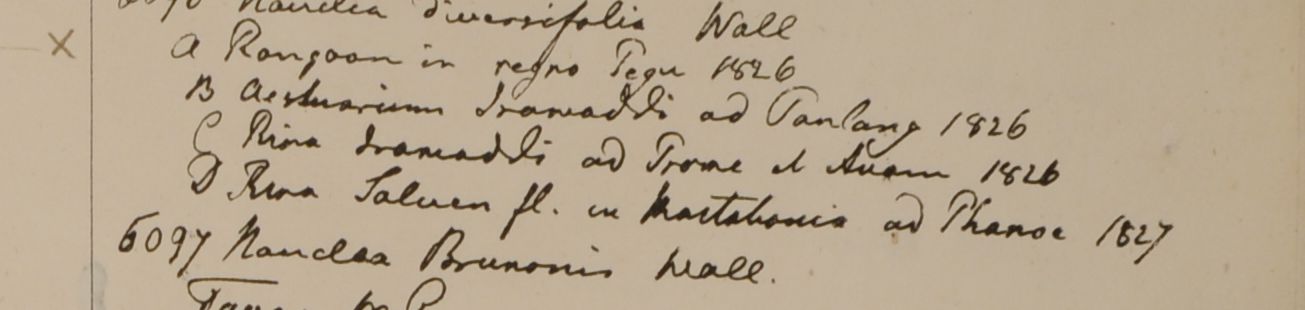 6096 Nauclea diversifolia Wall
A Rangoon in regno Pegu 1826
B Aestuarium Irawaddi ad Panlang 1826
C Ripa Irawaddi ad Prome et Avam 1826
D Ripa Saluen fl. in Martabania ad Phanoe 1827
6097 Nauclea Brunonis Wall.